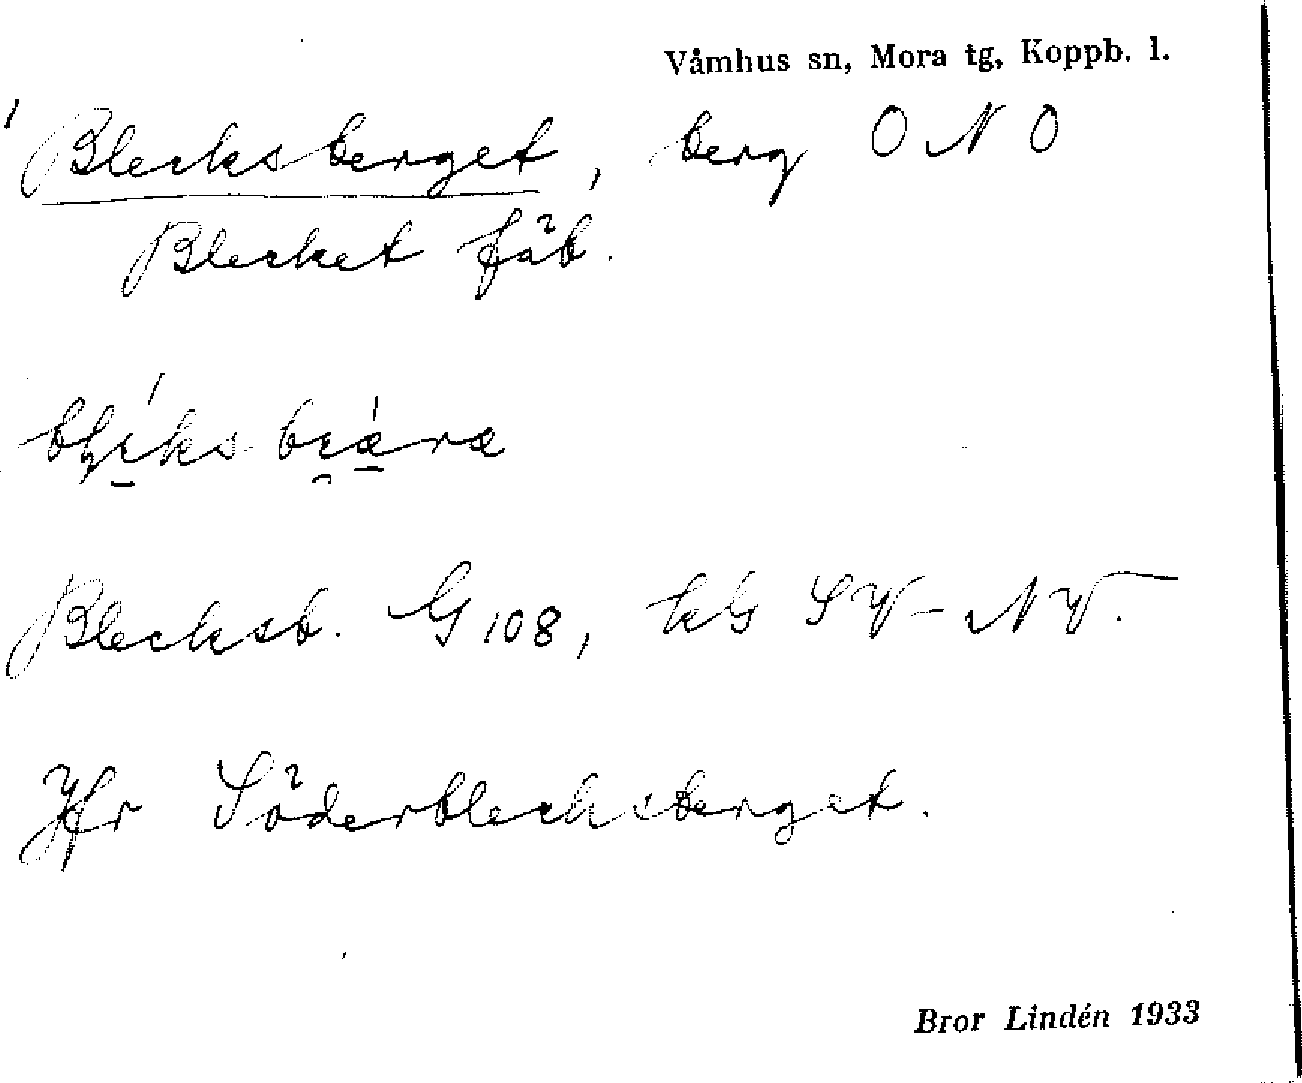 Våmhus sn, Mora tg, Koppb. l.
Blecksberget, berg ONO
Blecket fäb.
Blecksb. G 108, kG SV-NV.
Jfr Söderblecksberget.
Bror Lindén 1933